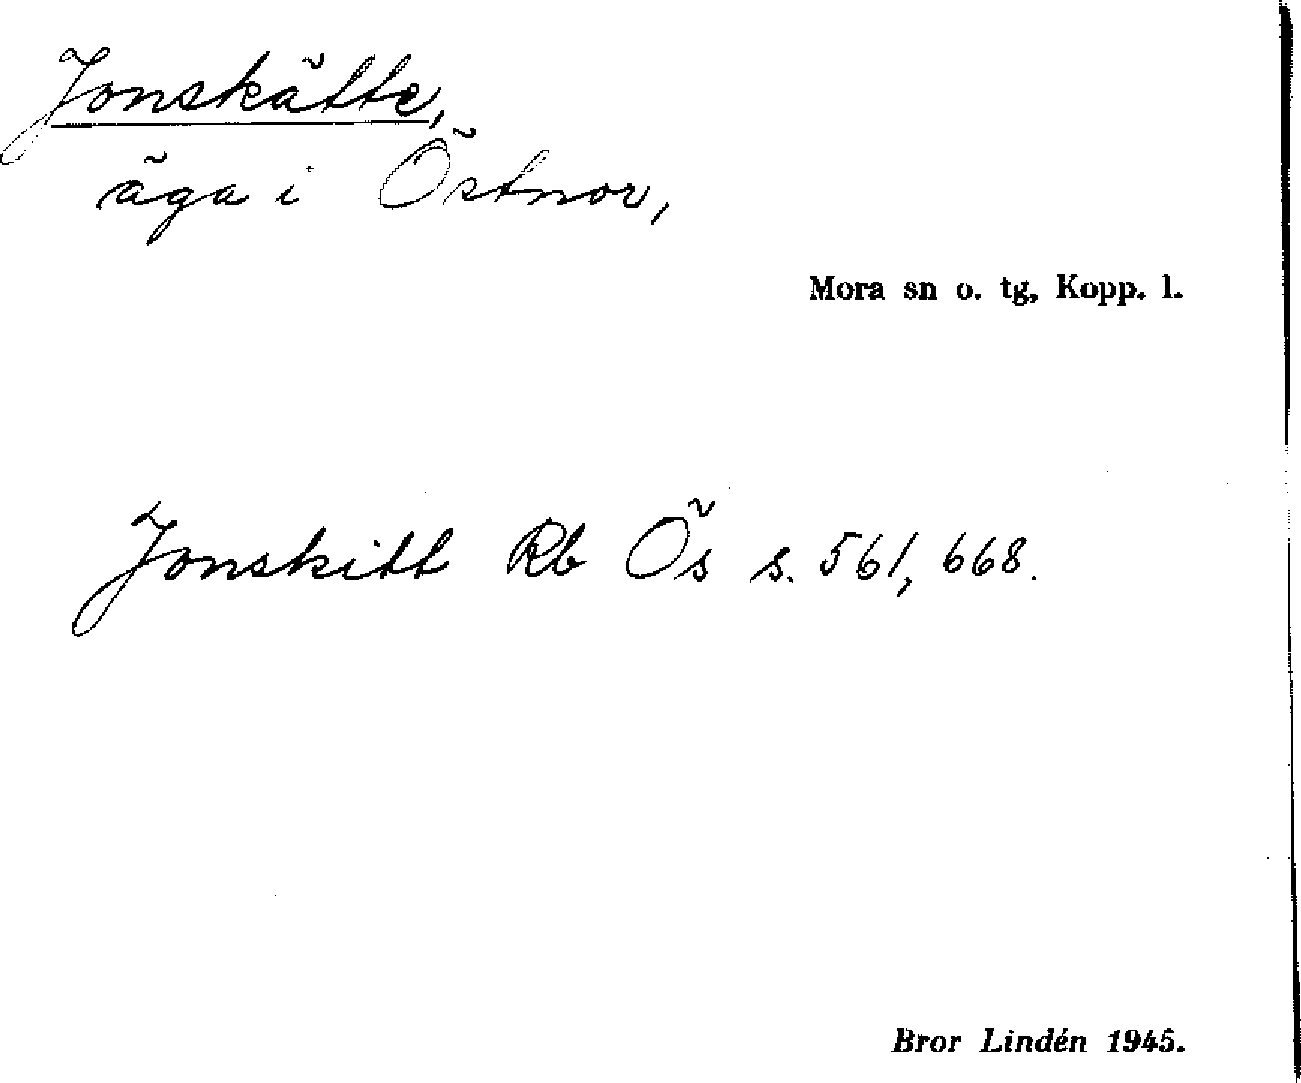 Jonskätte,
äga i Östnor,
Mora sn o. tg, Kopp. l.
Jonskitt Rb Ös s. 561, 668.
Bror Lindén 1945.